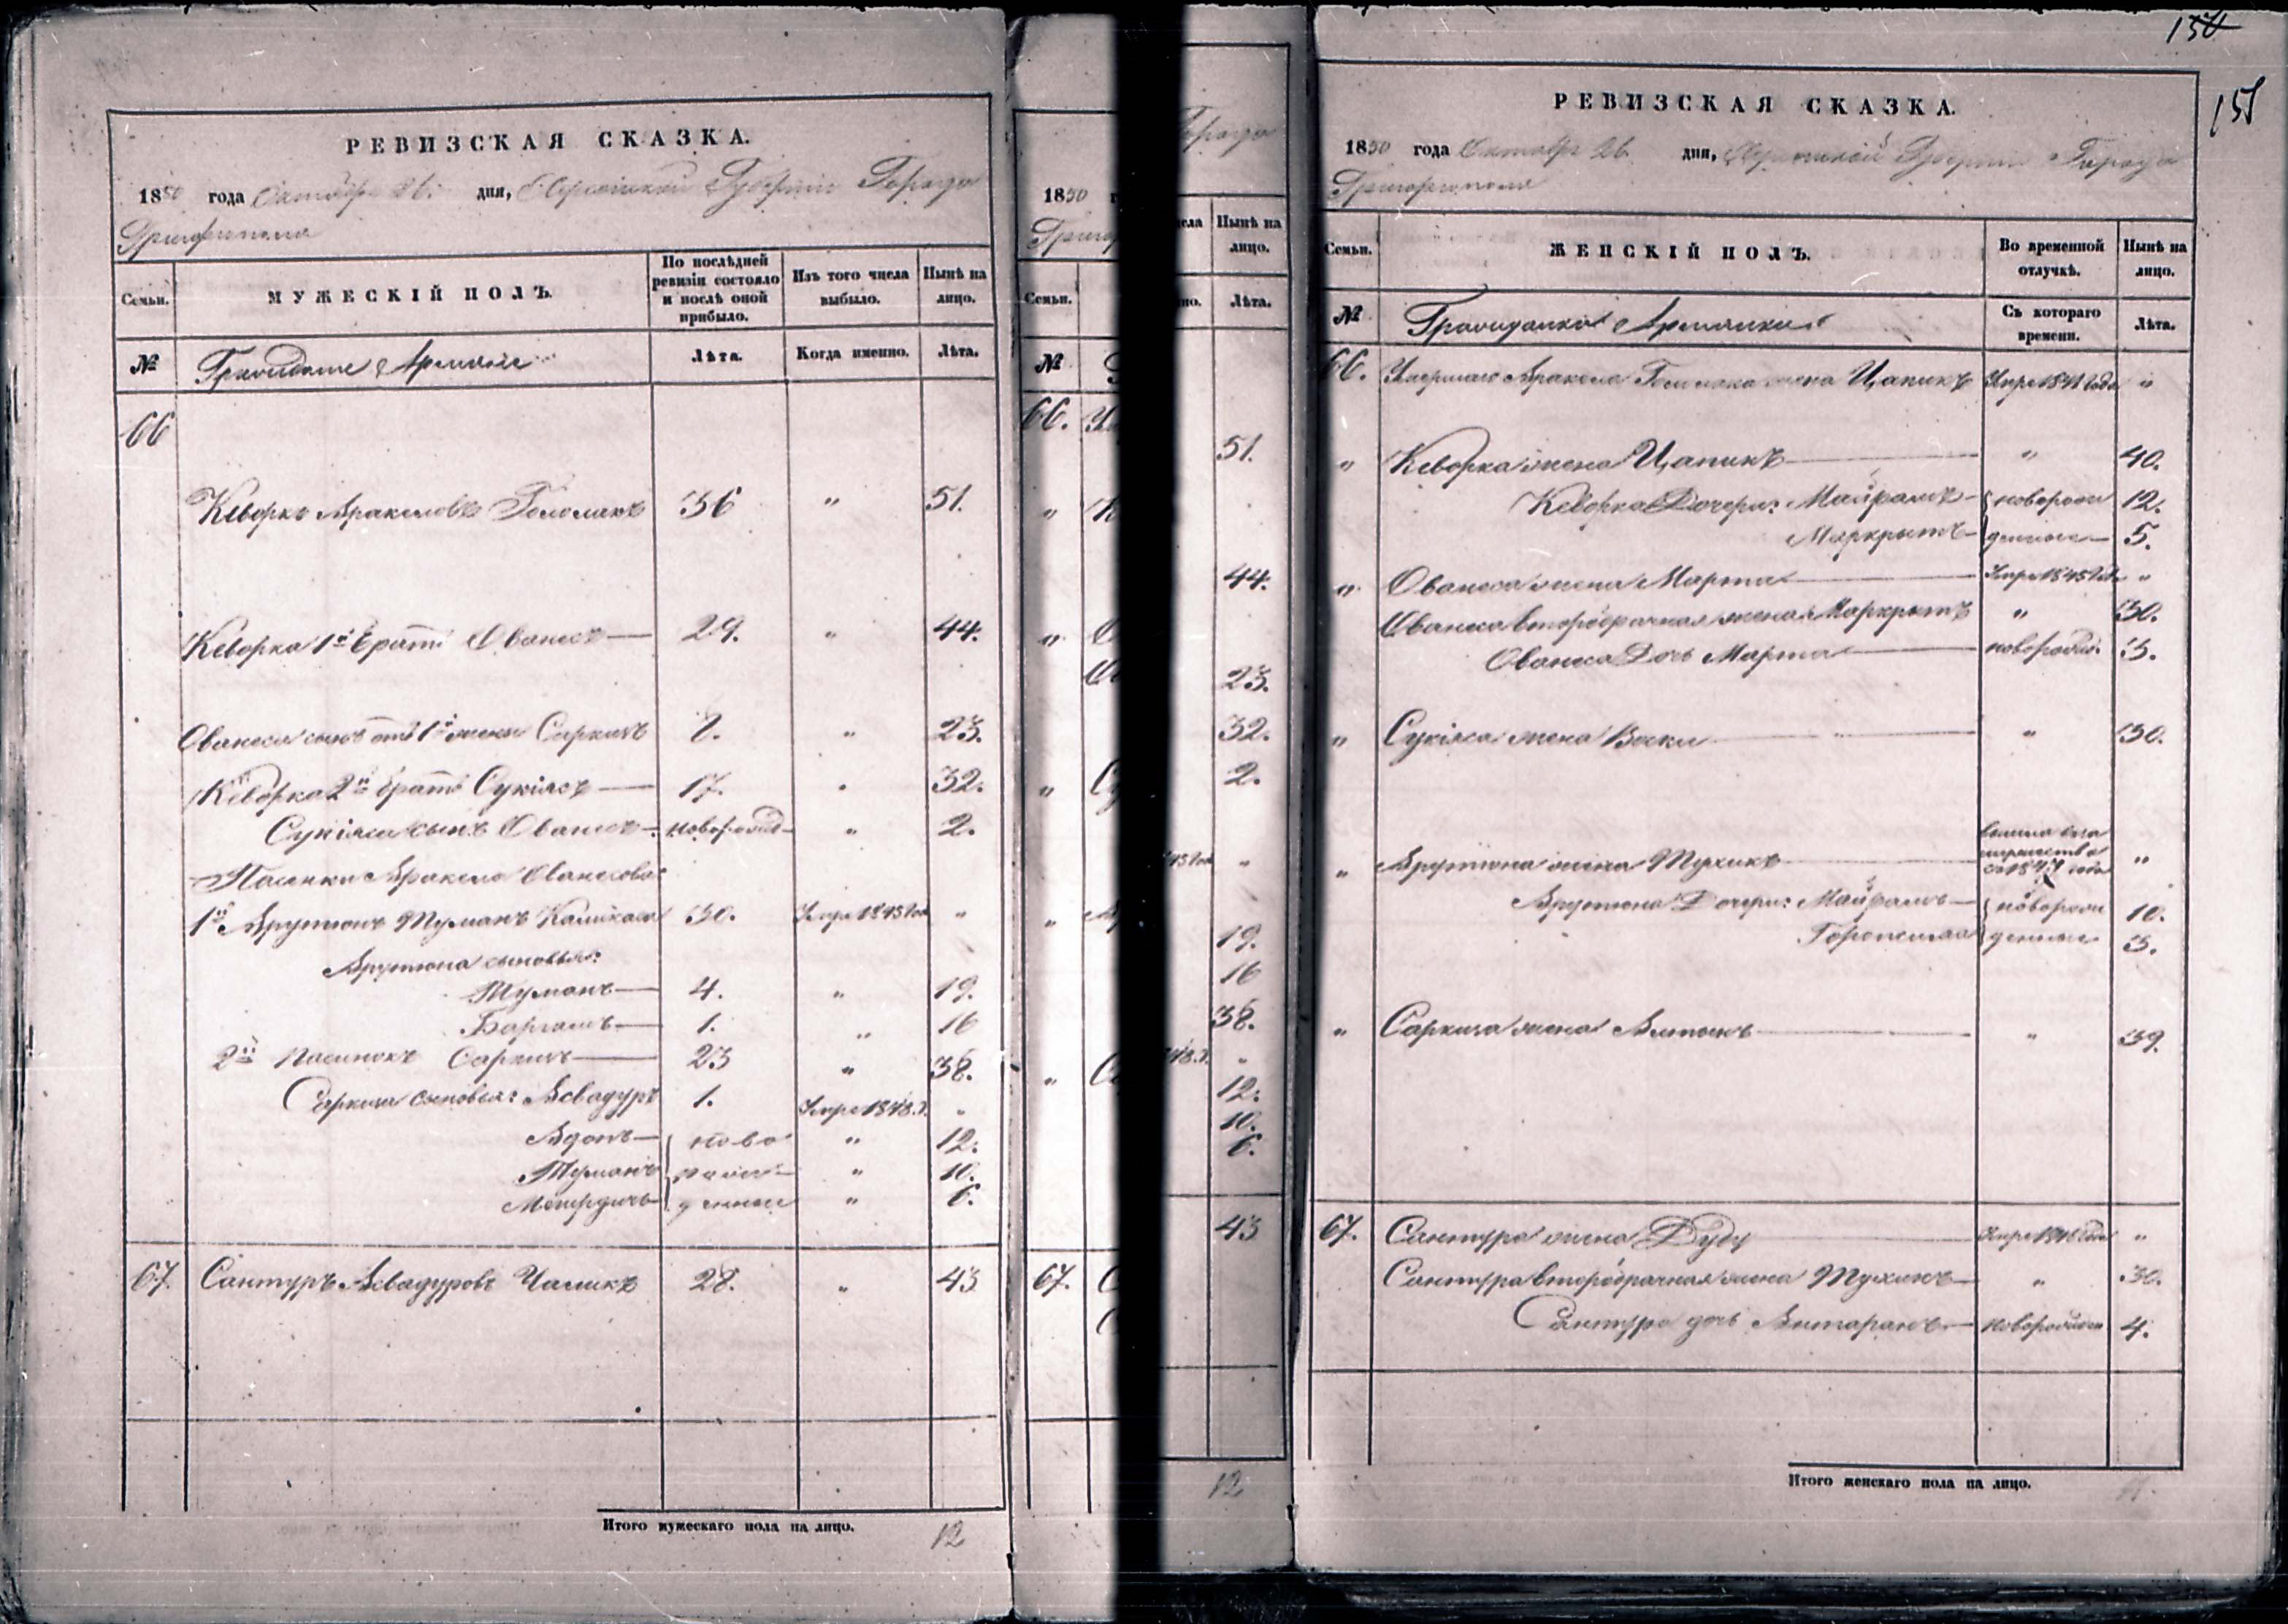 РЕВИЗСКАЯ СКАЗКА.
1850 года Октября 26. дня, Херсонской Губернии Города
Григориополя
Семьи. МУЖЕСКІЙ ПОЛЪ. По послѣдней ревизіи состояло и послѣ оной прибыло. Изъ того числа выбыло. Нынѣ на лицо.
№ Граждане Армяне Лѣта. Когда именно. Лѣта.
66
Кеворкъ Аракеловъ Голомакъ 36 " 51.
Кеворка 1й братъ Ованесъ 29. " 44.
Ованеса сынъ отъ 1й жены Саркисъ 8. " 23.
Кеворка 2й братъ Сукіясъ 17. " 32.
Сукіяса сынъ Ованесъ новорожд " 2.
Пасынки Аракела Ованесова:
1й Арутюнъ Туманъ 30. Умре 1845 Года "
Арутюна сыновья:
Туманъ 4. " 19.
1. " 16
2й Пасынокъ Саркисъ 23 " 38.
Саркиса сыновья: Асвадуръ 1. Умре 1848. г. "
Адамъ ново " 12.
Туманъ рож " 10.
Мкирдичъ денные " 6.
67. Сантуръ Асвадуровъ Чаликъ 28. " 43
Итого мужескаго пола на лицо. 12
1850 г
Григ
Семьи.
№
66.
67.
Города
Нынѣ на лицо.
Лѣта.
51.
44.
23.
32.
2.
"
19.
16
38.
"
12.
10.
6.
43
12
150
151
РЕВИЗСКАЯ СКАЗКА.
1850 года Октября 26. дня, Херсонской Губернии Города
Григориополя
Семьи. ЖЕНСКІЙ ПОЛЪ. Во временной отлучкѣ. Нынѣ на лицо.
№ Гражданки Армянки Съ котораго времени. Лѣта.
66. Умершаго Аракела Голомака жена Цапикъ Умре 1841 года "
" Кеворка жена Цапикъ " 40.
Кеворка Дочери: Майрамъ новорож 12.
Маркрытъ денные 5.
" Ованеса жена Марта Умре 1845 "
Ованеса второбрачная жена Маркрытъ " 30.
Ованеса Дочь Марта новорожд. 3.
" Сукіяса жена Воски " 30.
" Арутюна жена Тухикъ вышла въ замужество съ 1847 года "
Арутюна Дочери: Майрамъ новорож 10.
денные 3.
" Саркиса жена Алтунъ " 39.
67. Сантура жена Дуду Умре 1846 года "
Сантура второбрачная жена Тухикъ " 30.
Сантура дочь Антарамъ новорожден 4.
Итого женскаго пола на лицо.